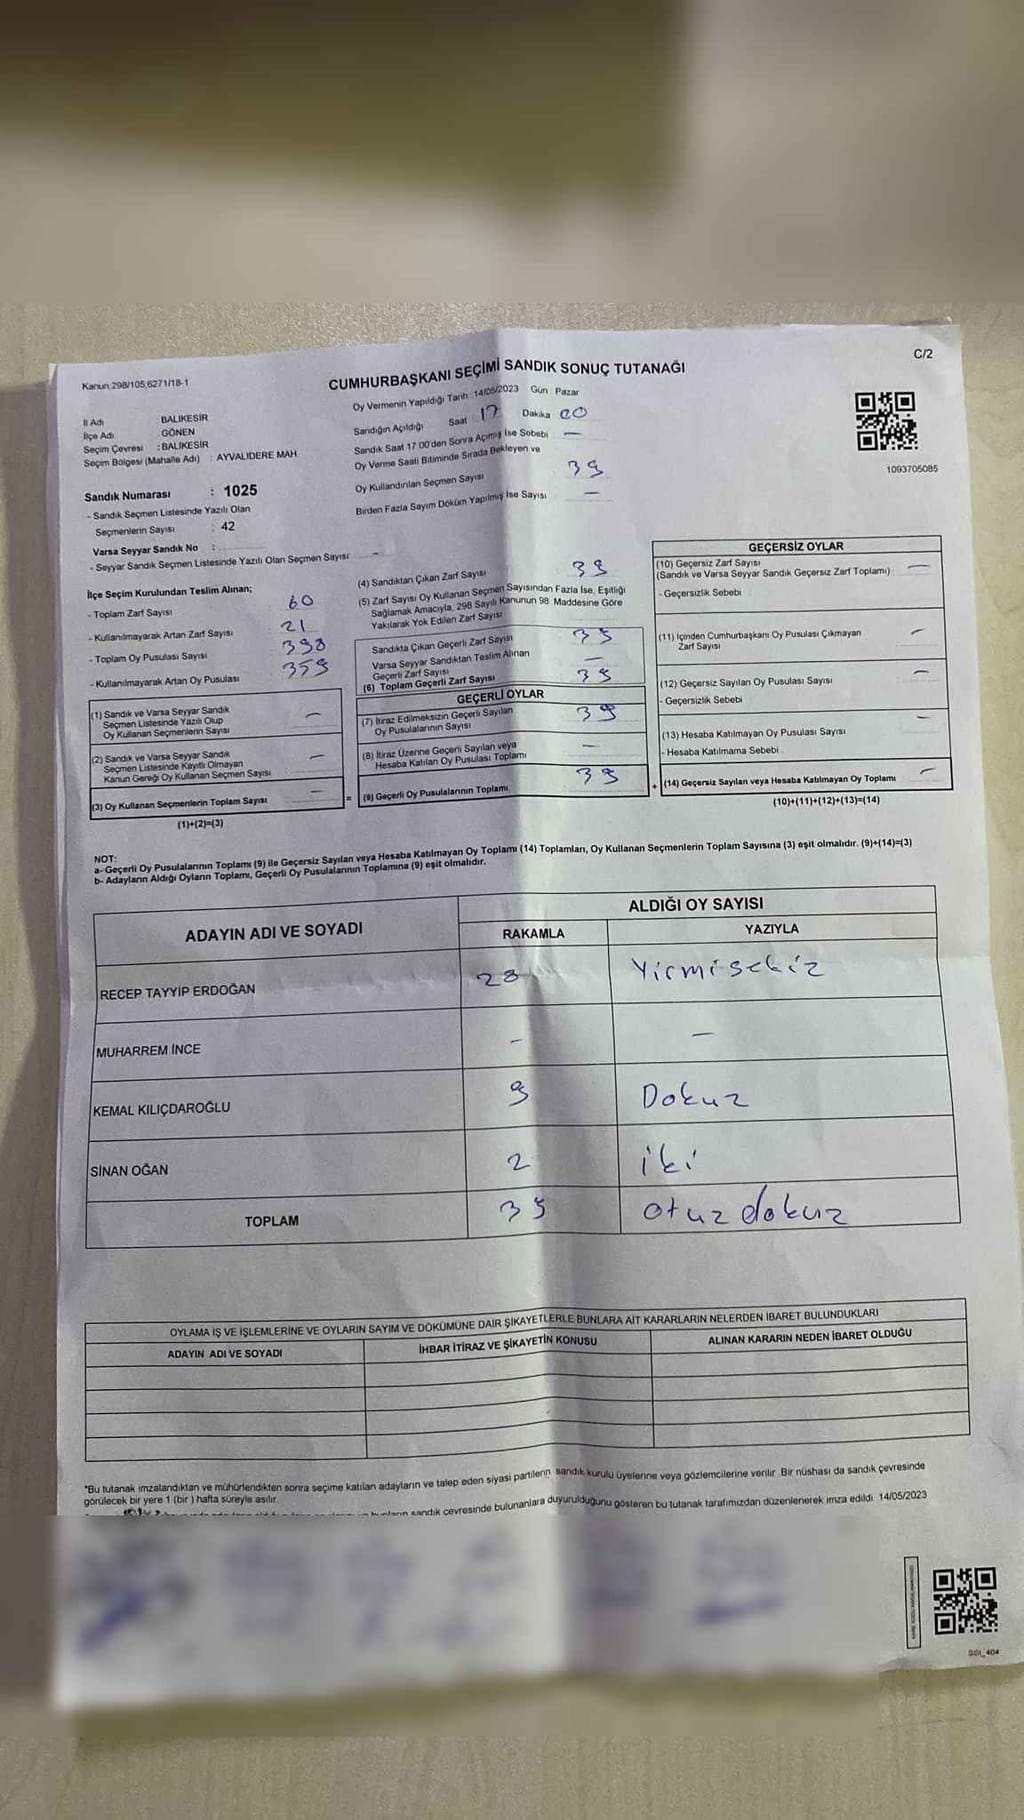 C/2
Kanun:298/105,6271/18-1
CUMHURBAŞKANI SEÇİMİ SANDIK SONUÇ TUTANAĞI
İl Adı BALIKESİR
İlçe Adı GÖNEN
Seçim Çevresi : BALIKESİR
Seçim Bölgesi (Mahalle Adı) : AYVALIDERE MAH
Sandık Numarası : 1025
- Sandık Seçmen Listesinde Yazılı Olan
Seçmenlerin Sayısı : 42
Varsa Seyyar Sandık No :
- Seyyar Sandık Seçmen Listesinde Yazılı Olan Seçmen Sayısı: -
Oy Vermenin Yapıldığı Tarih : 14/05/2023 Gün Pazar
Sandığın Açıldığı Saat 17 Dakika 00
Sandık Saat 17:00'den Sonra Açmış İse Sebebi —
Oy Verme Saati Bitiminde Sırada Bekleyen ve
Oy Kullandırılan Seçmen Sayısı 39
Birden Fazla Sayım Döküm Yapılmış İse Sayısı —
1093705085
İlçe Seçim Kurulundan Teslim Alınan;
- Toplam Zarf Sayısı 60
- Kullanılmayarak Artan Zarf Sayısı 21
- Toplam Oy Pusulası Sayısı 398
- Kullanılmayarak Artan Oy Pusulası 359
(1) Sandık ve Varsa Seyyar Sandık
Seçmen Listesinde Yazılı Olup
Oy Kullanan Seçmenlerin Sayısı —
(2) Sandık ve Varsa Seyyar Sandık
Seçmen Listesinde Kayıtlı Olmayan
Kanun Gereği Oy Kullanan Seçmen Sayısı —
(3) Oy Kullanan Seçmenlerin Toplam Sayısı —
(1)+(2)=(3)
(4) Sandıktan Çıkan Zarf Sayısı 39
(5) Zarf Sayısı Oy Kullanan Seçmen Sayısından Fazla İse, Eşitliği
Sağlamak Amacıyla, 298 Sayılı Kanunun 98. Maddesine Göre
Yakılarak Yok Edilen Zarf Sayısı
Sandıkta Çıkan Geçerli Zarf Sayısı 39
Varsa Seyyar Sandıktan Teslim Alınan
Geçerli Zarf Sayısı —
(6) Toplam Geçerli Zarf Sayısı 39
GEÇERLİ OYLAR
(7) İtiraz Edilmeksizin Geçerli Sayılan
Oy Pusulalarının Sayısı 39
(8) İtiraz Üzerine Geçerli Sayılan veya
Hesaba Katılan Oy Pusulası Toplamı —
= (9) Geçerli Oy Pusulalarının Toplamı 39
GEÇERSİZ OYLAR
(10) Geçersiz Zarf Sayısı
(Sandık ve Varsa Seyyar Sandık Geçersiz Zarf Toplamı) —
- Geçersizlik Sebebi
(11) İçinden Cumhurbaşkanı Oy Pusulası Çıkmayan
Zarf Sayısı —
(12) Geçersiz Sayılan Oy Pusulası Sayısı —
- Geçersizlik Sebebi
(13) Hesaba Katılmayan Oy Pusulası Sayısı —
- Hesaba Katılmama Sebebi
+ (14) Geçersiz Sayılan veya Hesaba Katılmayan Oy Toplamı —
(10)+(11)+(12)+(13)=(14)
NOT:
a- Geçerli Oy Pusulalarının Toplamı (9) ile Geçersiz Sayılan veya Hesaba Katılmayan Oy Toplamı (14) Toplamları, Oy Kullanan Seçmenlerin Toplam Sayısına (3) eşit olmalıdır. (9)+(14)=(3)
b- Adayların Aldığı Oyların Toplamı, Geçerli Oy Pusulalarının Toplamına (9) eşit olmalıdır.
ADAYIN ADI VE SOYADI ALDIĞI OY SAYISI
RAKAMLA YAZIYLA
RECEP TAYYİP ERDOĞAN 28 Yirmisekiz
MUHARREM İNCE - —
KEMAL KILIÇDAROĞLU 9 Dokuz
SİNAN OĞAN 2 iki
TOPLAM 39 otuz dokuz
OYLAMA İŞ VE İŞLEMLERİNE VE OYLARIN SAYIM VE DÖKÜMÜNE DAİR ŞİKAYETLERLE BUNLARA AİT KARARLARIN NELERDEN İBARET BULUNDUKLARI
ADAYIN ADI VE SOYADI İHBAR İTİRAZ VE ŞİKAYETİN KONUSU ALINAN KARARIN NEDEN İBARET OLDUĞU
*Bu tutanak imzalandıktan ve mühürlendikten sonra seçime katılan adayların ve talep eden siyasi partilerin sandık kurulu üyelerine veya gözlemcilerine verilir. Bir nüshası da sandık çevresinde
görülecek bir yere 1 (bir) hafta süreyle asılır.
sandık çevresinde bulunanlara duyurulduğunu gösteren bu tutanak tarafımızdan düzenlenerek imza edildi 14/05/2023